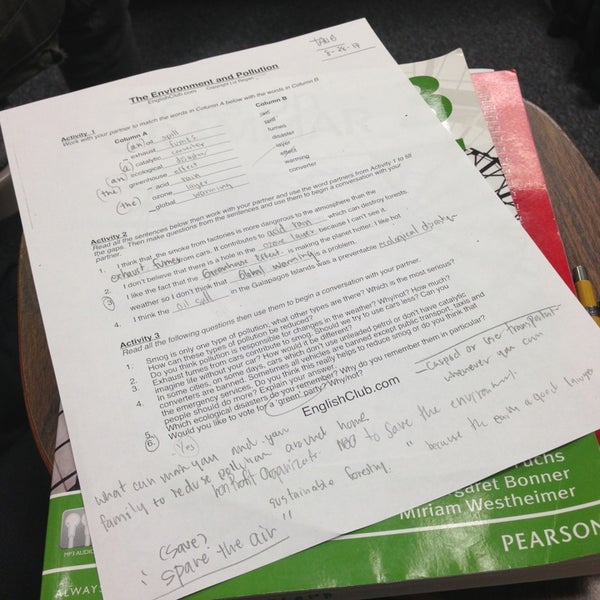 8-28-17
The Environment and Pollution
EnglishClub.com
Activity 1
Work with your partner to match the words in Column A below with the words in Column B
Column A
Column B
(an) oil spill
rain
- exhaust fumes
spill
(a) catalytic converter
fumes
(an) ecological disaster
disaster
(the) greenhouse effect
layer
- acid rain
effect
(the) ozone layer
warming
_global warming
converter
Activity 2
Read all the sentences below then work with your partner and use the word partners from Activity 1 to fill
the gaps. Then make questions from the sentences and use them to begin a conversation with your
partner.
1. I think that the smoke from factories is more dangerous to the atmosphere than the
exhaust fumes from cars. It contributes to acid rain which can destroy forests.
2. I don't believe that there is a hole in the ozone layer because I can't see it.
3 I like the fact that the Greenhouse Effect is making the planet hotter. I like hot
weather so I don't think that Global warming is a problem.
4. I think the oil spill in the Galapagos Islands was a preventable ecological disaster
Activity 3
Read all the following questions then use them to begin a conversation with your partner.
1. Smog is only one type of pollution, what other types are there? Which is the most serious?
How can these types of pollution be reduced?
2. Do you think pollution is responsible for changes in the weather? Why/not? How much?
3. Exhaust fumes from cars contribute to smog. Should we try to use cars less? Can you
imagine life without your car? How would it be different?
4. In some cities, on some days, cars which don't use unleaded petrol or don't have catalytic
converters are banned. Sometimes all vehicles are banned except public transport, taxis and
the emergency services. Do you think this really helps to reduce smog or do you think that
people should do more? Explain your answer.
5. Which ecological disasters do you remember? Why do you remember them in particular?
6. Would you like to vote for a 'green' party? Why/not?
EnglishClub.com
Yes
or use transportat-
whenever you can
what can you and your
family to reduse pollution around home
to save the environment.
nonprofit
sustainable forestry.
" because the earth a good
(save)
: "spare the air"
Fuchs
Margaret Bonner
Miriam Westheimer
PEARSON
MP3 AUDIO
ALWAYS